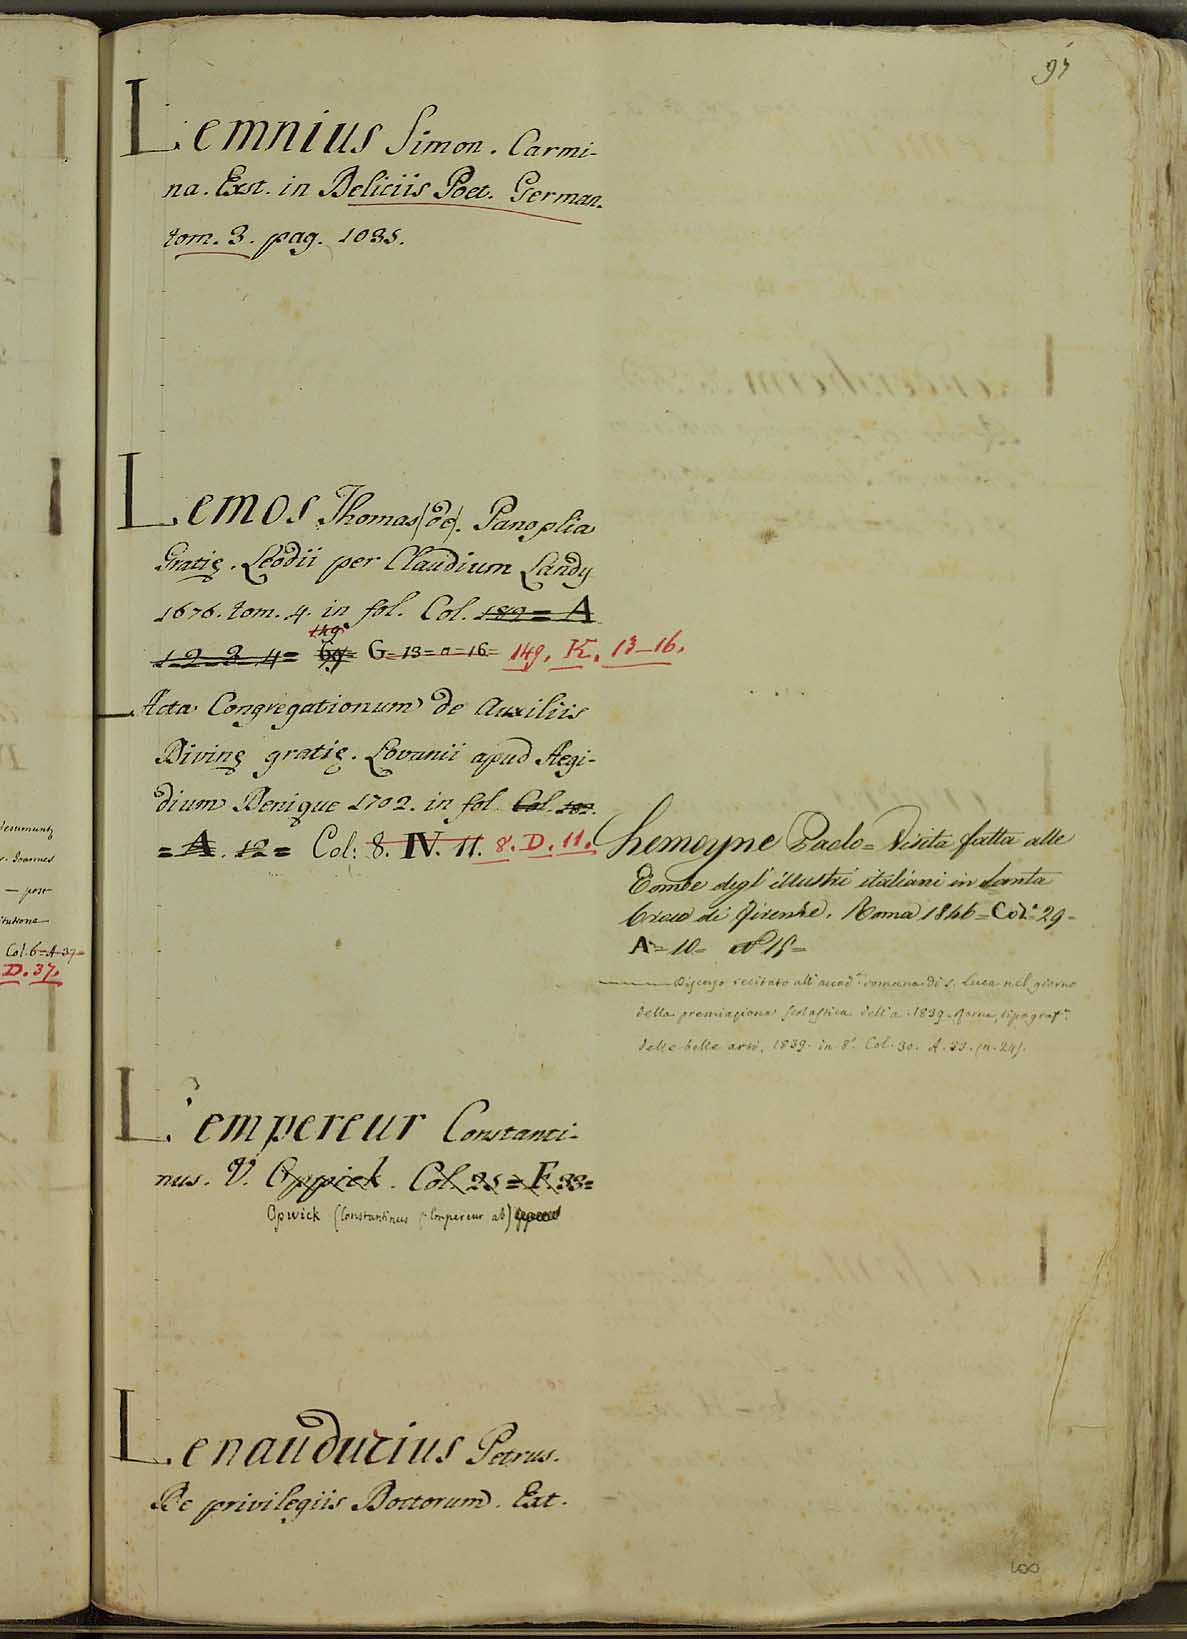 97
Lemnius Simon. Carmi-
na. Exst. in Deliciis Poet. German.
tom. 3. pag. 1035.
Lemos Thomas (de). Panoplia
Gratię. Leodii per Claudium Landy
1676. tom. 4. in fol. Col. 189 = A
149
1-2-3-4= G= 13= a =16= 149. K. 13-16.
Acta Congregationum de Auxiliis
Divinę gratię. Lovanii apud Aegi-
dium Denique 1702. in fol. Col. 182.
= A. 12 = Col: 8. IV. 11. 8. D. 11.
Lemoyne Paolo = Visita fatta alle
Tombe degl' illustri italiani in Santa
Croce di Firenze. Roma 1846 = Col. 29-
A = 10 = N° 15 =
Discorso recitato all' accad. romana di S. Luca nel giorno
della premiazione scolastica dell' a. 1839. Roma, tipograf.
delle belle arti, 1839. in 8° Col. 30. A. 33. (n. 24).
L'empereur Constanti-
nus. V. Oppick. Col. 25 = F. 33=
Opwick (Constantinus l'Empereur ab)
Lenauderius Petrus.
De privilegiis Doctorum. Ext.
100
desumunt
Joannes
— post
Col. 6 = A 37 =
D. 37.